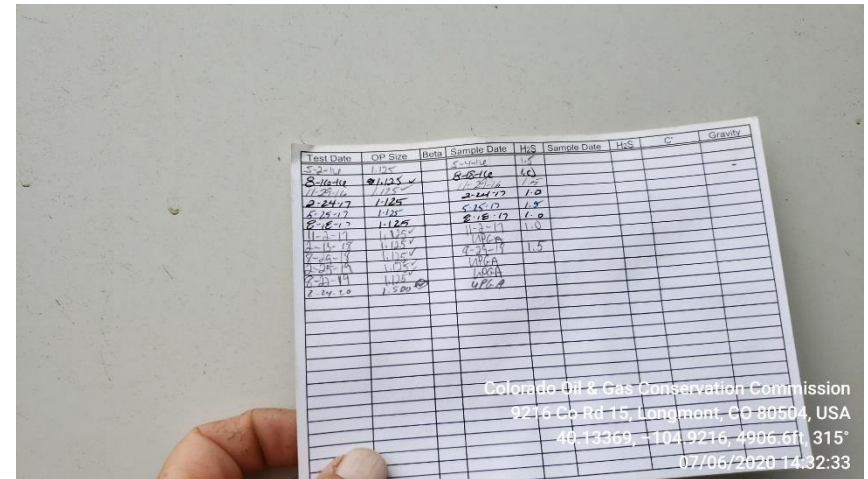 Test Date OP Size Beta Sample Date H2S Sample Date H2S C' Gravity
5-2-16 1.125 5-4-16 1.5
8-16-16 1.125 ✓ 8-18-16 1.0
11-29-16 1.125 ✓ 11-29-16 1.5
2-24-17 1.125 2-24-17 1.0
5-25-17 1.125 5-25-17 1.5
8-18-17 1.125 8-18-17 1.0
11-2-17 1.125 ✓ 11-2-17 1.0
2-13-18 1.125 ✓ UPGA
8-29-18 1.125 ✓ 8-29-18 1.5
2-25-19 1.125 ✓ UPGA
8-22-19 1.125 UPGA
2-24-20 1.500 UPGA
Colorado Oil & Gas Conservation Commission
9216 Co Rd 15, Longmont, CO 80504, USA
40.13369, -104.9216, 4906.6ft, 315°
07/06/2020 14:32:33